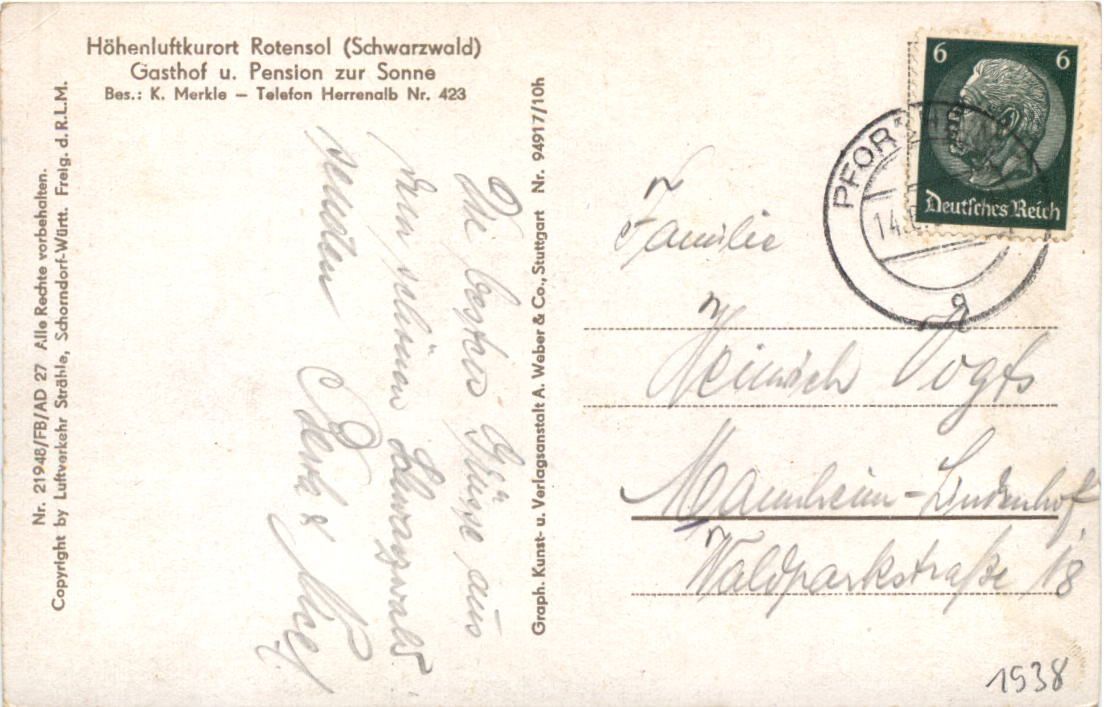 Höhenluftkurort Rotensol (Schwarzwald)
Gasthof u. Pension zur Sonne
Bes.: K. Merkle – Telefon Herrenalb Nr. 423
Nr. 21948/FB/AD 27 Alle Rechte vorbehalten.
Copyright by Luftverkehr Strähle, Schorndorf-Württ. Freig. d. R.L.M.
Die besten Grüße aus
dem schönen Schwarzwald
senden
Graph. Kunst- u. Verlagsanstalt A. Weber & Co., Stuttgart Nr. 94917/10h
6 6
Deutsches Reich
14.
Familie
Heinrich Vogts
Mannheim-Lindenhof
Waldparkstraße 18
1938